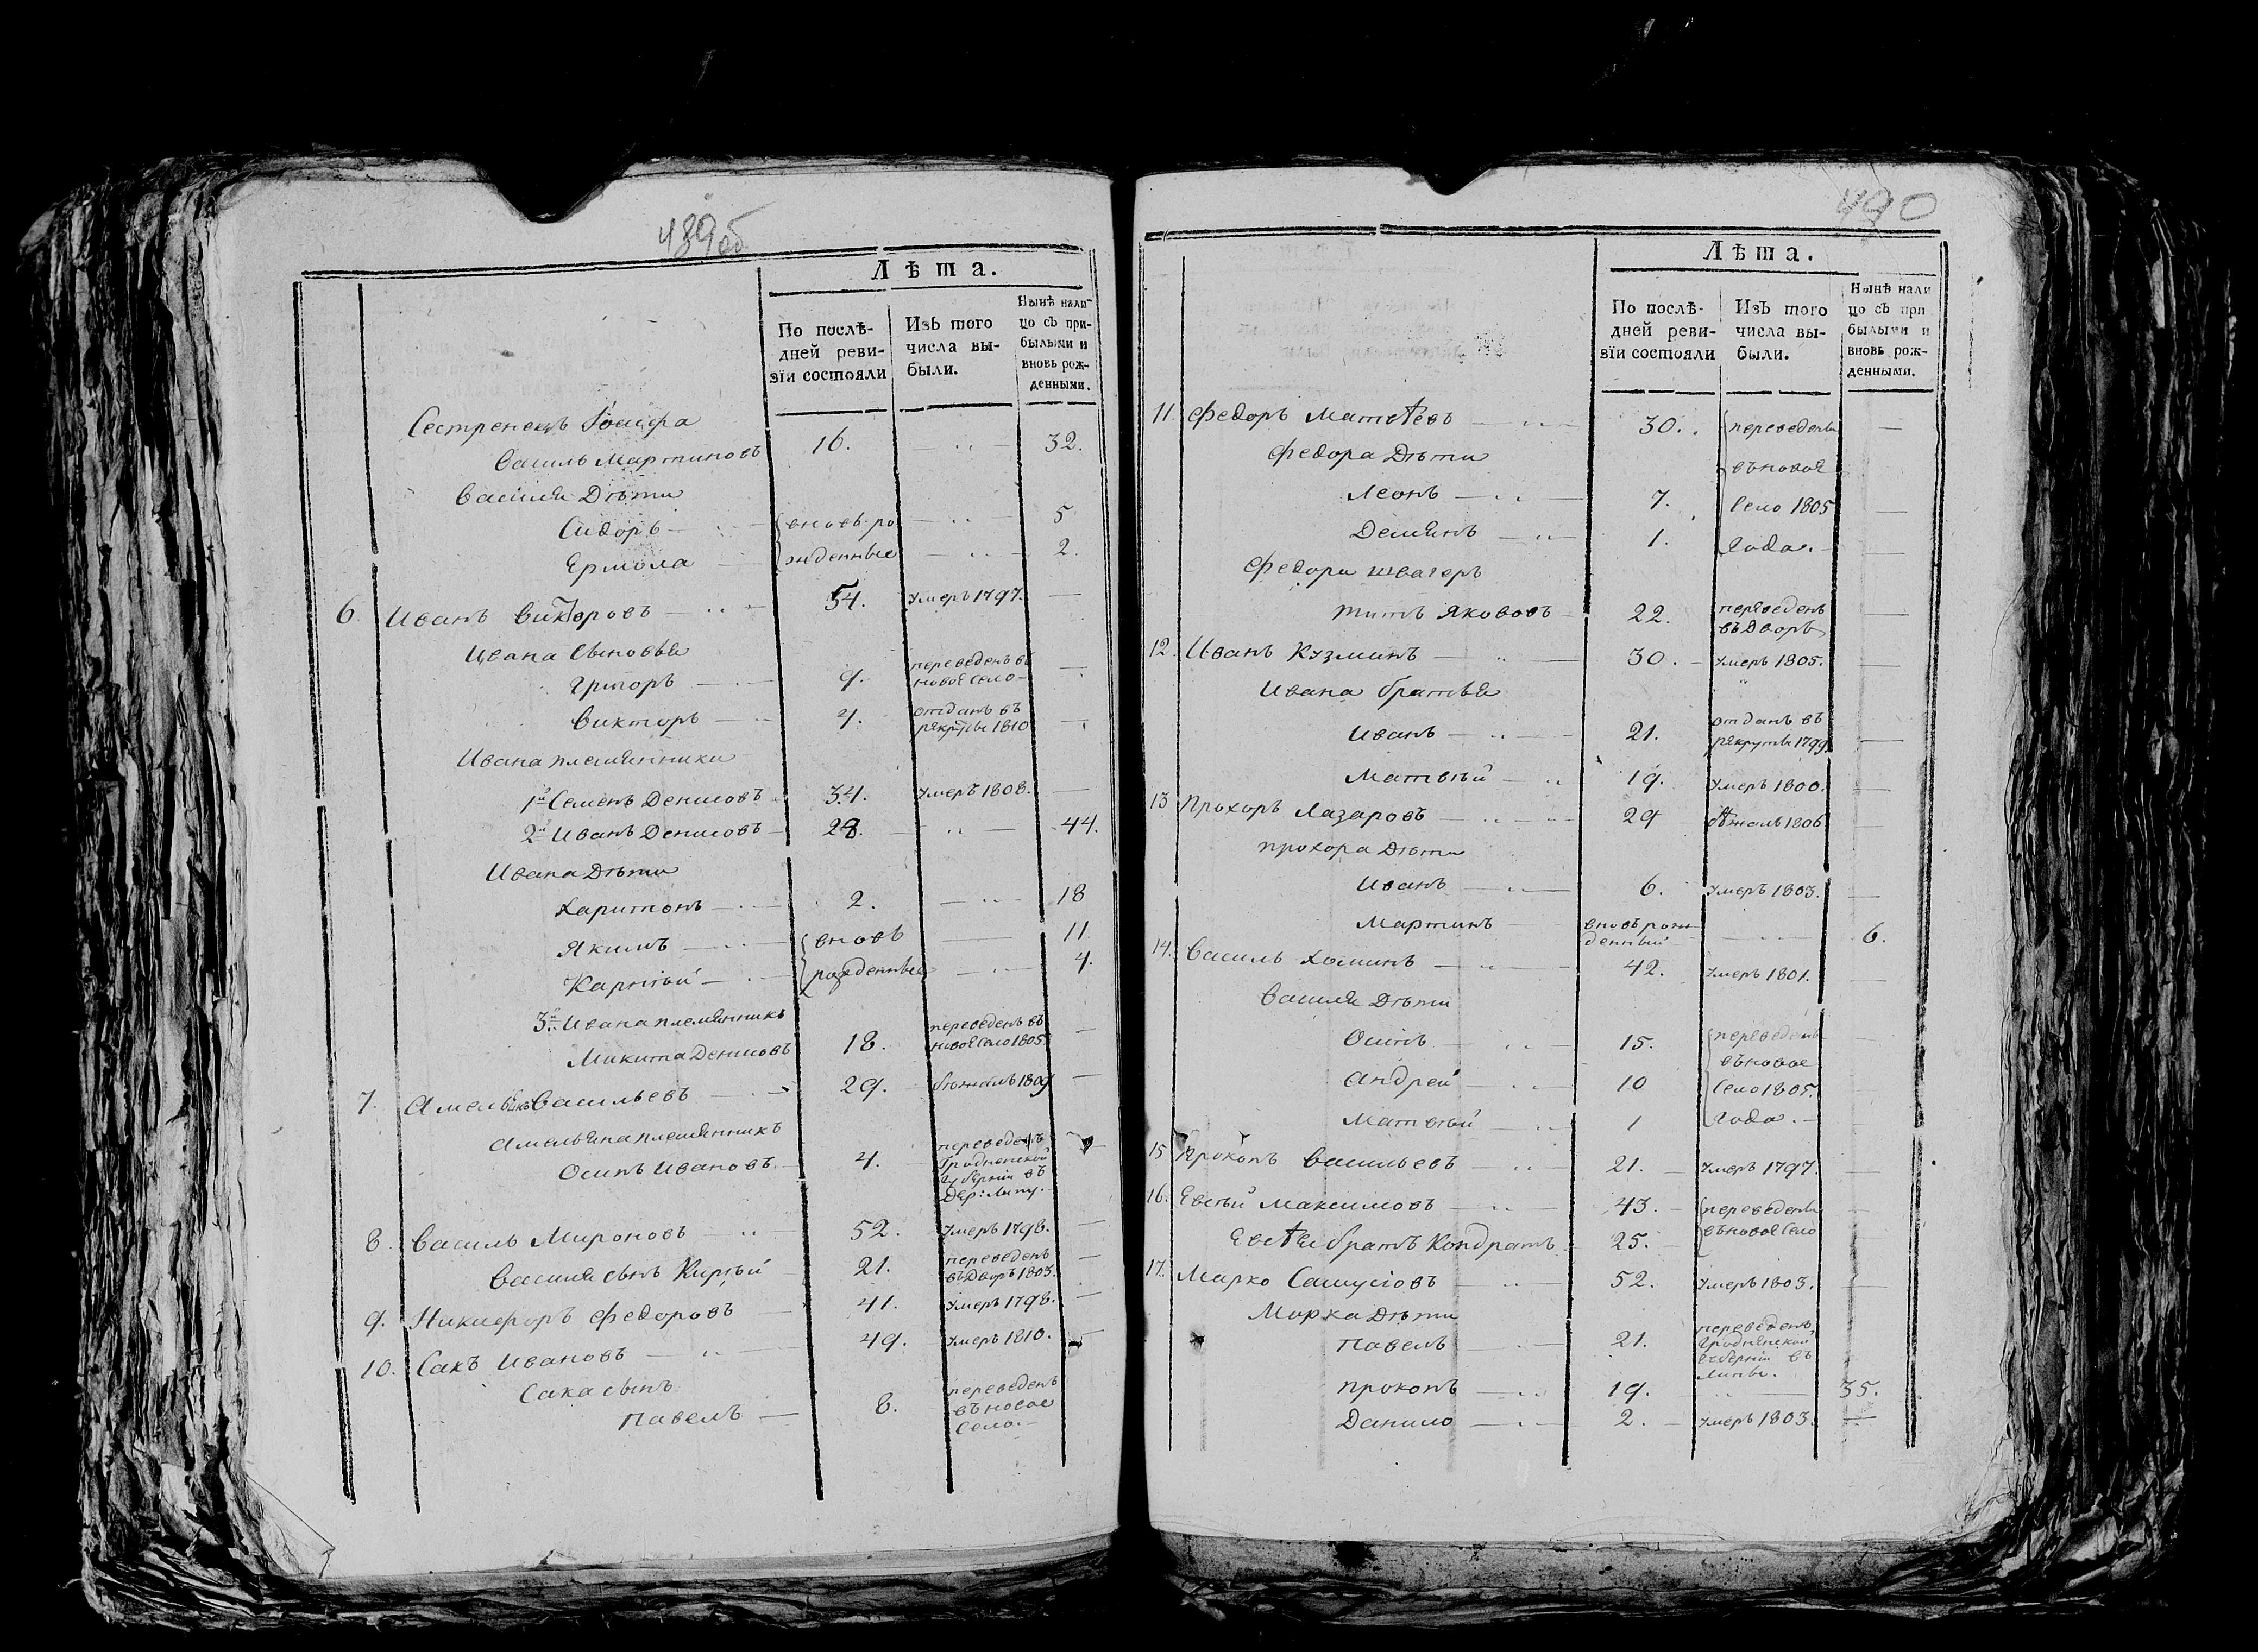 489об
Лѣта.
По послѣ-
дней реви-
зїи состояли
Изъ того
числа вы-
были.
Нынѣ нали-
цо съ при-
былыми и
вновь рож-
денными.
Сестренецъ Іосифа
Василь Мартиновъ 16. 32.
Василя Дѣти
Сидоръ вновь ро 5
Ермола жденные 2.
6. Иванъ Викторовъ 54. умеръ 1797.
Ивана сыновья
Григоръ 9. переведенъ въ
новое село
Викторъ 7. отданъ въ
рекруты 1810
Ивана племянники
1й Семенъ Денисовъ 34. умеръ 1808.
2й Иванъ Денисовъ 28. 44.
Ивана Дѣти
Харитонъ 2. 18
Якимъ вновь 11.
Карпѣй рожденные 4.
3й Ивана племянникъ
Микита Денисовъ 18. переведенъ въ
новое село 1805
7. Амельянъ Васильевъ 29. бѣжалъ 1809
Амельяна племянникъ
Осипъ Ивановъ 4. переведенъ
Гродненской
Губерніи въ
дер: Липу.
8. Василь Мироновъ 52. умеръ 1798.
Василя сынъ Кирѣй 21. переведенъ
въ Дворъ 1803.
9. Никифоръ Федоровъ 41. умеръ 1798.
10. Сакъ Ивановъ 49. умеръ 1810.
Сака сынъ
Павелъ 8. переведенъ
въ новое
село.
490
Лѣта.
По послѣ-
дней реви-
зїи состояли
Изъ того
числа вы-
были.
Нынѣ нали
цо съ при
былыми и
вновь рож-
денными.
11. Федоръ Матвѣевъ 30. переведены
Федора Дѣти въ новое
Леонъ 7. село 1805
Демянъ 1. года.
Федора швагеръ
Титъ Якововъ 22. переведенъ
въ Дворъ
12. Иванъ Кузминъ 30. умеръ 1805.
Ивана братья
Иванъ 21. отданъ въ
рекруты 1799.
Матвѣй 19. умеръ 1800.
13 Прохоръ Лазаровъ 29 бѣжалъ 1806
Прохора Дѣти
Иванъ 6. умеръ 1803.
Мартинъ вновь рож
денный 6.
14. Василь Хоминъ 42. умеръ 1801.
Василя Дѣти
Осипъ 15. переведены
въ новое
Андрей 10 село 1805.
Матвѣй 1 года.
15 Прокопъ Васильевъ 21. умеръ 1797.
16. Евсѣй Максимовъ 43. переведены
Евсѣя братъ Кондратъ 25. въ новое село
17. Марко Самусіовъ 52. умеръ 1803.
Марка Дѣти
Павелъ 21. переведенъ
Гродненской
Губерніи въ
Липы.
Прокопъ 19. 35.
Данило 2. умеръ 1803.